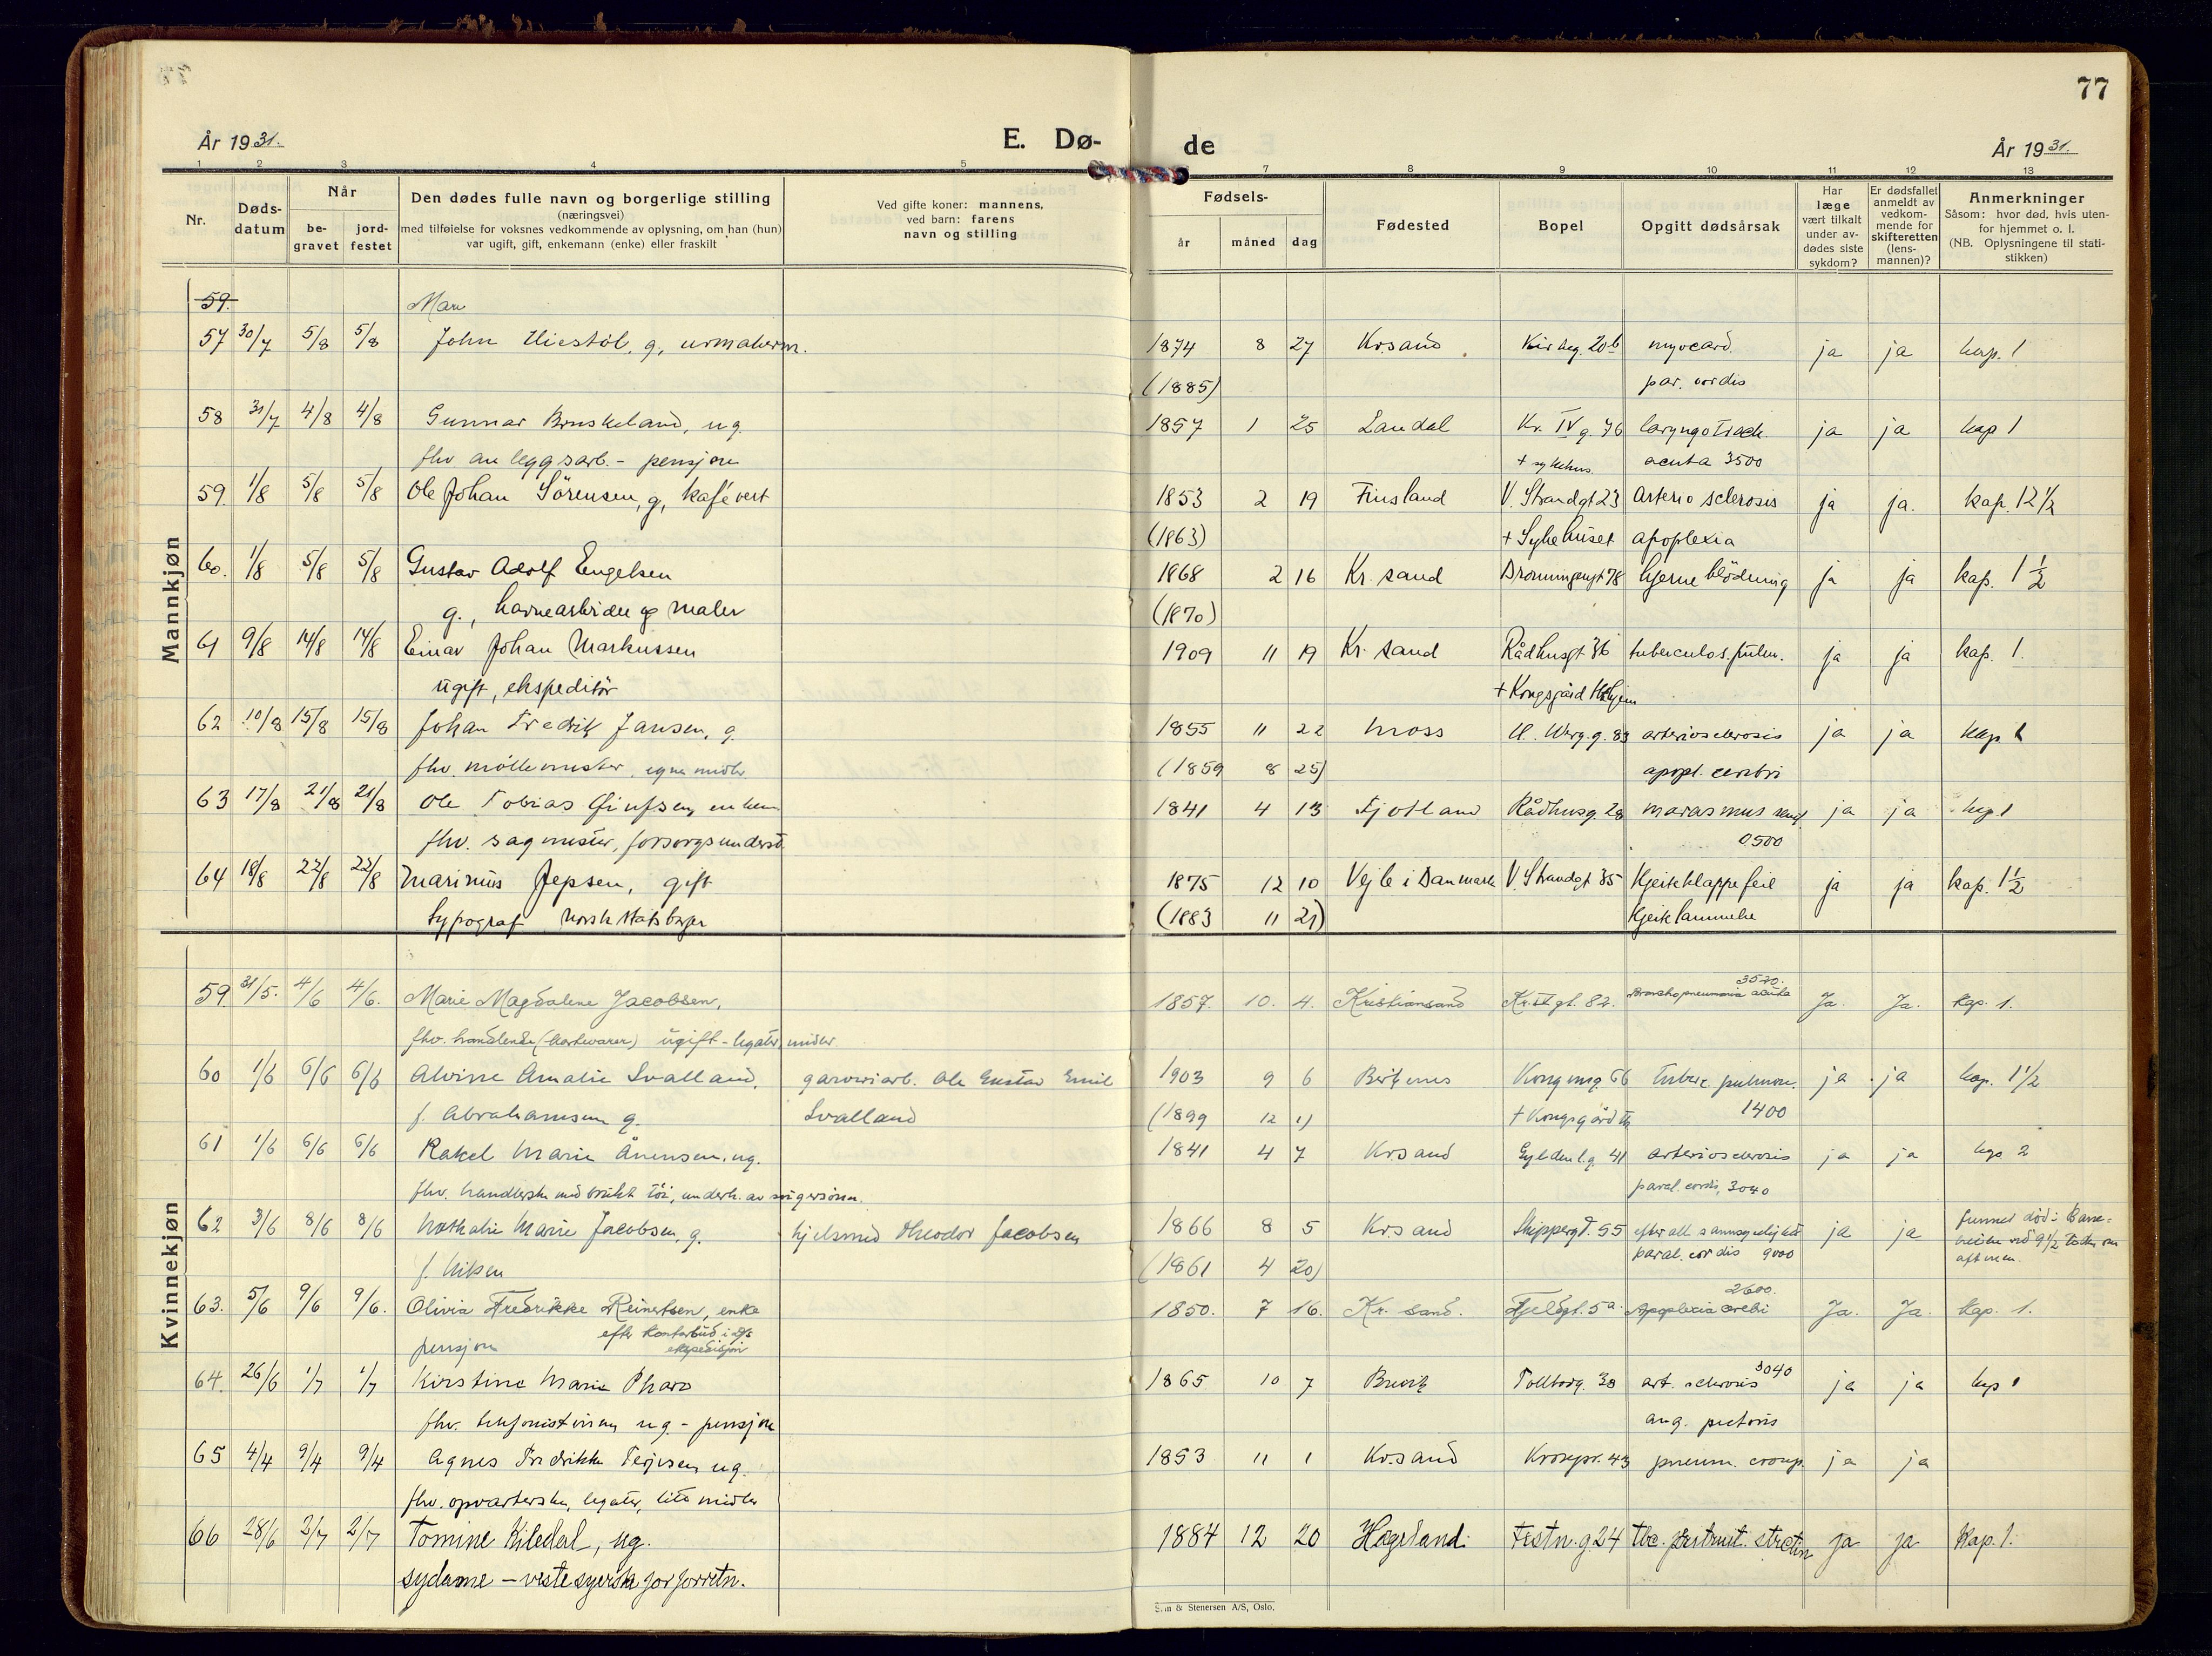 77
År 1931.
E. Dø-
de
År 1931.
1 2 3 4 5 7 8 9 10 11 12 13
Nr.
Døds-
datum
Når
be-
gravet
jord-
festet
Den dødes fulle navn og borgerlige stilling
(næringsvei)
med tilføielse for voksnes vedkommende av oplysning, om han (hun)
var ugift, gift, enkemann (enke) eller fraskilt
Ved gifte koner: mannens,
ved barn: farens
navn og stilling
Fødsels-
år måned dag
Fødested
Bopel
Opgitt dødsårsak
Har
læge
vært tilkalt
under av-
dødes siste
sykdom?
Er dødsfallet
anmeldt av
vedkom-
mende for
skifteretten
(lens-
mannen)?
Anmerkninger
Såsom: hvor død, hvis uten-
for hjemmet o. l.
(NB. Oplysningene til stati-
stikken)
Mannkjøn
59.
57 30/7 5/8 5/8 John g, urmakerm. 1874 8 27 Krsand 20b myocard. ja ja kap. 1
(1885) par. cordis
58 31/7 4/8 4/8 Gunnar Bruskeland, ug. 1857 1 25 Laudal Kr. IV g. 76 ja ja kap 1
fhv anleggsarb. - pensjon + sykehus. acuta 3500
59. 1/8 5/8 5/8 Ole Johan Sörensen, g, kafévert 1853 2 19 Finsland V. Strandgt 23 Arterio sclerosis ja ja. kap. 12 1/2
(1863) + Sykehuset apoplexia
60. 1/8 5/8 5/8 Gustav Adolf Engelsen 1868 2 16 Kr. sand Dronningensgt 78 hjerneblödning ja ja kap. 1 1/2
g., havnearbider og maler (1870)
61 9/8 14/8 14/8 Einar Johan Markussen 1909 11 19 Kr. sand Rådhusgt 36 tuberculos. pulm. ja ja kap. 1.
ugift, ekspeditör + Kongsgård
62 10/8 15/8 15/8 Johan Fredrik Jansen, g. 1855 11 22 Moss H. Werg. g. 83 arteriosclerosis ja ja kap 1
fhv. möllemester, egne midler (1859 8 25) apopl. cerebri
63 17/8 21/8 21/8 Ole Tobias 1841 4 13 Fjotland Rådhusg. 28 marasmus ja ja kap 1
fhv. sagmester, forsorgsunderst. 0500
64 18/8 22/8 22/8 Marinus Jepsen, gift 1875 12 10 Vejle i Danmark V. Strandgt 35 Hjerteklappefeil ja ja kap. 1 1/2
typograf norsk statsborger (1883 11 21) Hjertelammelse
Kvinnekjøn
59 31/5. 4/6 4/6. Marie Magdalene Jacobsen, 1857. 10. 4. Kristiansand Kr. IV gt. 82. 3570. Bronchopneumonia acuta Ja. Ja. kap. 1.
fhv. handlende (kortevarer) ugift - legater, midler
60 1/6 6/6 6/6 Alvine Amalie Svalland, garveriarb. Ole Gustav Emil 1903 9 6 Birkenes Kongensg. 66 Tuberc. pulmon. ja ja kap. 1 1/2
f. Abrahamsen g. Svalland (1899 12 1) + Kongsgård 1400
61 1/6 6/6 6/6 Rakel Marie Ånensen, ug. 1841 4 7 Krsand Gyldenl. g. 41 arteriosclerosis ja ja kap 2
fhv. handlerske med brukt töi, underh. av svigersönn. paral. cordis, 3040
62 3/6 8/6 8/6 Nathalie Marie Jacobsen, g. Theodor Jacobsen 1866 8 5 Krsand Skippergt. 55 efter all sannsynlighet ja ja funnet död i
f. (1861 4 20) paral. cordis 9000 ved 9 1/2 tiden om
aftenen.
63. 5/6 9/6 9/6. Olivia Fredrikke Reinertsen, enke 1850. 7 16. Kr. sand. Fjeldgt. 5a. 2600. Apoplexia cerebri Ja. Ja. kap. 1.
pensjon efter kontorbud i d/s
ekspedisjon
64. 26/6 1/7 1/7 Kirstine Marie Pharo 1865 10 7 Brevik Tollbodg. 38 art. sclerosis 3040 ja ja kap 1
fhv. telefonistinne, ug - pensjon ang. pectoris
65 4/4 9/4 9/4 Agnes Fredrikke Terjesen, ug. 1853 11 1 Krsand Kronpr. 43 pneum. croup. ja ja
fhv. opvarterske, legater, litt midler
66 28/6 2/7 2/7 Tomine Kiledal, ug. 1884 12 20 Hægeland Festn. g. 24 tbc. ja ja Kap. 1.
sydame - vestesyerske for forretn.
& Stenersen A/S, Oslo.